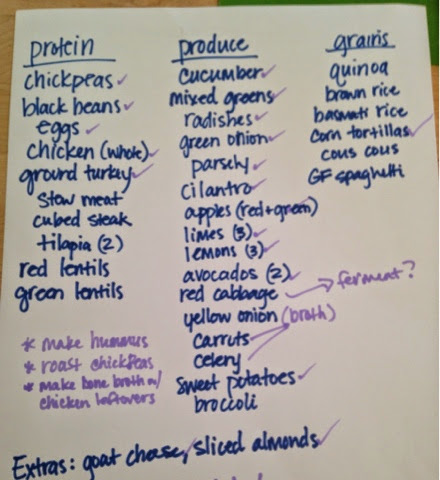 protein
chickpeas ✓
black beans ✓
eggs ✓
chicken (whole) ✓
ground turkey ✓
stew meat
cubed steak
tilapia (2)
red lentils
green lentils
* make hummus
* roast chickpeas
* make bone broth w/
chicken leftovers
produce
cucumber ✓
mixed greens ✓
radishes ✓
green onion ✓
parsely ✓
cilantro ✓
apples (red+green) ✓
limes (3) ✓
lemons (3) ✓
avocados (2) ✓
red cabbage → ferment?
yellow onion (broth)
carruts
celery
sweet potatoes ✓
broccoli
grains
quinoa
brown rice
basmati rice
corn tortillas ✓
cous cous
GF spaghetti
Extras: goat cheese, ✓ sliced almonds ✓